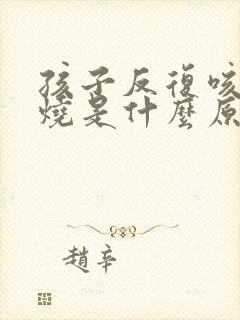 孩子反復咳
燒是什麼原
趙辛